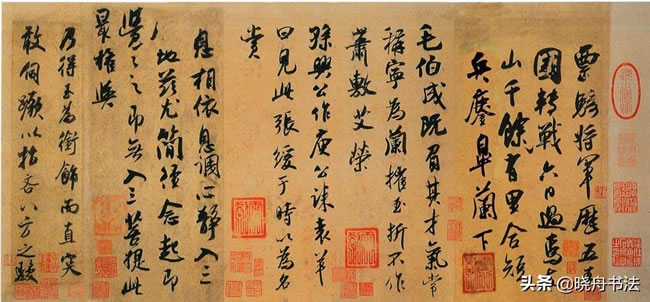 票鷂將軍歷五王
國轉戰六日過焉支
山千餘有里合短
兵鏖皋蘭下
毛伯成既負其才氣常
稱寧為蘭摧玉折不作
蕭敷艾榮
孫興公作庾公誄袁羊
曰見此張緩于時以為名
賞
息相依息調心靜入三
地茲尤簡徑念起即
覺々之即無入三菩提此
最捷
乃得玉為銜飾而直突
敢伺以八方之駿
头条 @晓舟书法